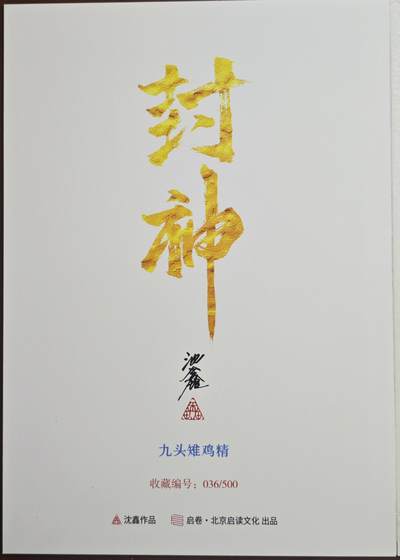 封
神
沈鑫
九头雉鸡精
收藏编号：036/500
沈鑫作品 启卷·北京启读文化 出品